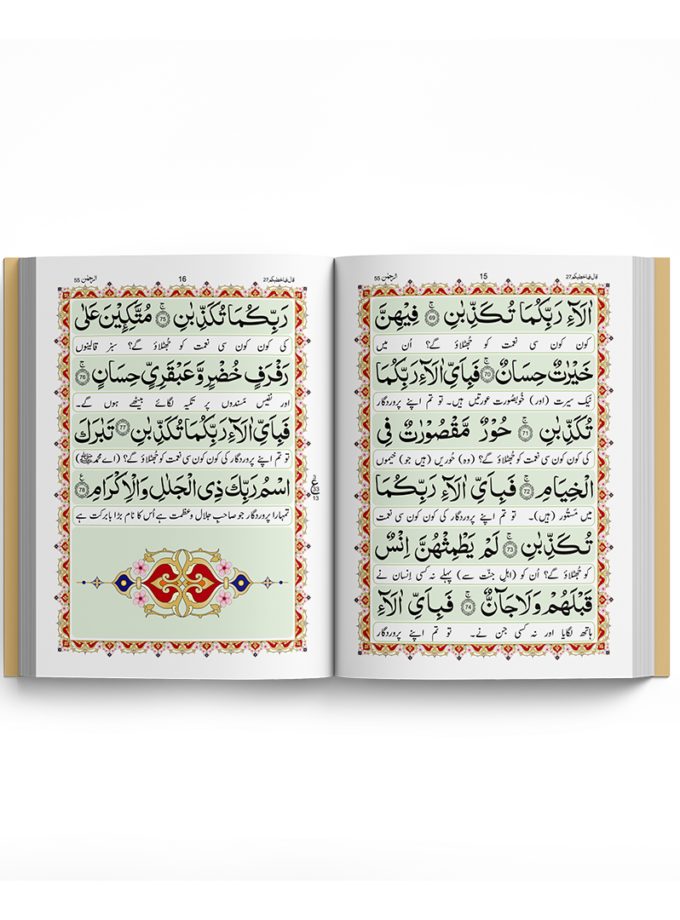 قال فما خطبکم 27 15 الرحمٰن 55
اٰلَآءِ رَبِّكُمَا تُكَذِّبٰنِ ۚ ۶۹ فِيْهِنَّ
کون کون سی نعمت کو جُھٹلاؤ گے؟ اُن میں
خَيْرٰتٌ حِسَانٌ ۚ ۷۰ فَبِاَيِّ اٰلَآءِ رَبِّكُمَا
نیک سیرت (اور) خوبصورت عورتیں ہیں۔ تو تم اپنے پروردگار
تُكَذِّبٰنِ ۚ ۷۱ حُوْرٌ مَّقْصُوْرٰتٌ فِى
کی کون کون سی نعمت کو جُھٹلاؤ گے؟ (وہ) حُوریں (ہیں جو) خیموں
الْخِيَامِ ۚ ۷۲ فَبِاَيِّ اٰلَآءِ رَبِّكُمَا
میں مَستُور (ہیں)۔ تو تم اپنے پروردگار کی کون کون سی نعمت
تُكَذِّبٰنِ ۚ ۷۳ لَمْ يَطْمِثْهُنَّ اِنْسٌ
کو جُھٹلاؤ گے؟ اُن کو (اہلِ جنّت سے) پہلے نہ کسی انسان نے
قَبْلَهُمْ وَلَا جَآنٌّ ۚ ۷۴ فَبِاَيِّ اٰلَآءِ
ہاتھ لگایا اور نہ کسی جن نے۔ تو تم اپنے پروردگار
قال فما خطبکم 27 16 الرحمٰن 55
رَبِّكُمَا تُكَذِّبٰنِ ۚ ۷۵ مُتَّكِـِٕيْنَ عَلٰى
کی کون کون سی نعمت کو جُھٹلاؤ گے؟ سبز قالینوں
رَفْرَفٍ خُضْرٍ وَّعَبْقَرِيٍّ حِسَانٍ ۚ ۷۶
اور نفیس مَسندوں پر تکیہ لگائے بیٹھے ہوں گے۔
فَبِاَيِّ اٰلَآءِ رَبِّكُمَا تُكَذِّبٰنِ ۷۷ تَبٰرَكَ
تو تم اپنے پروردگار کی کون کون سی نعمت کو جُھٹلاؤ گے؟ (اے محمد ﷺ)
اسْمُ رَبِّكَ ذِى الْجَلٰلِ وَالْاِكْرَامِ ۷۸
تمہارا پروردگار جو صاحبِ جلال و عظمت ہے اُس کا نام بڑا بابرکت ہے
ع
13